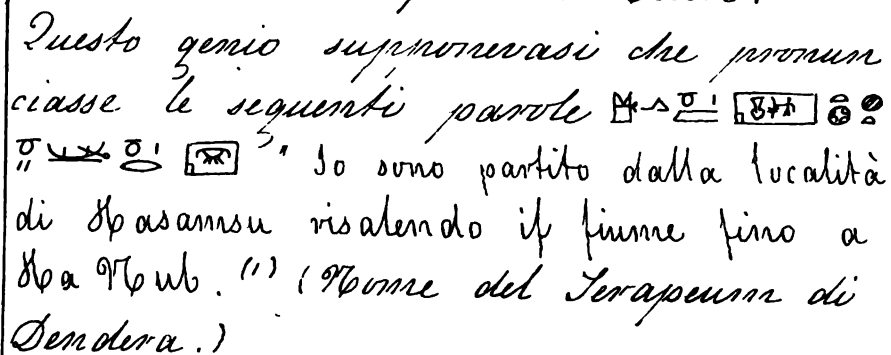 Questo genio supponevasi che pronun
ciasse le seguenti parole
" Io sono partito dalla località
di Hasamsu risalendo il fiume fino a
Ha Nub. (1) (Nome del Serapeum di
Dendera.)